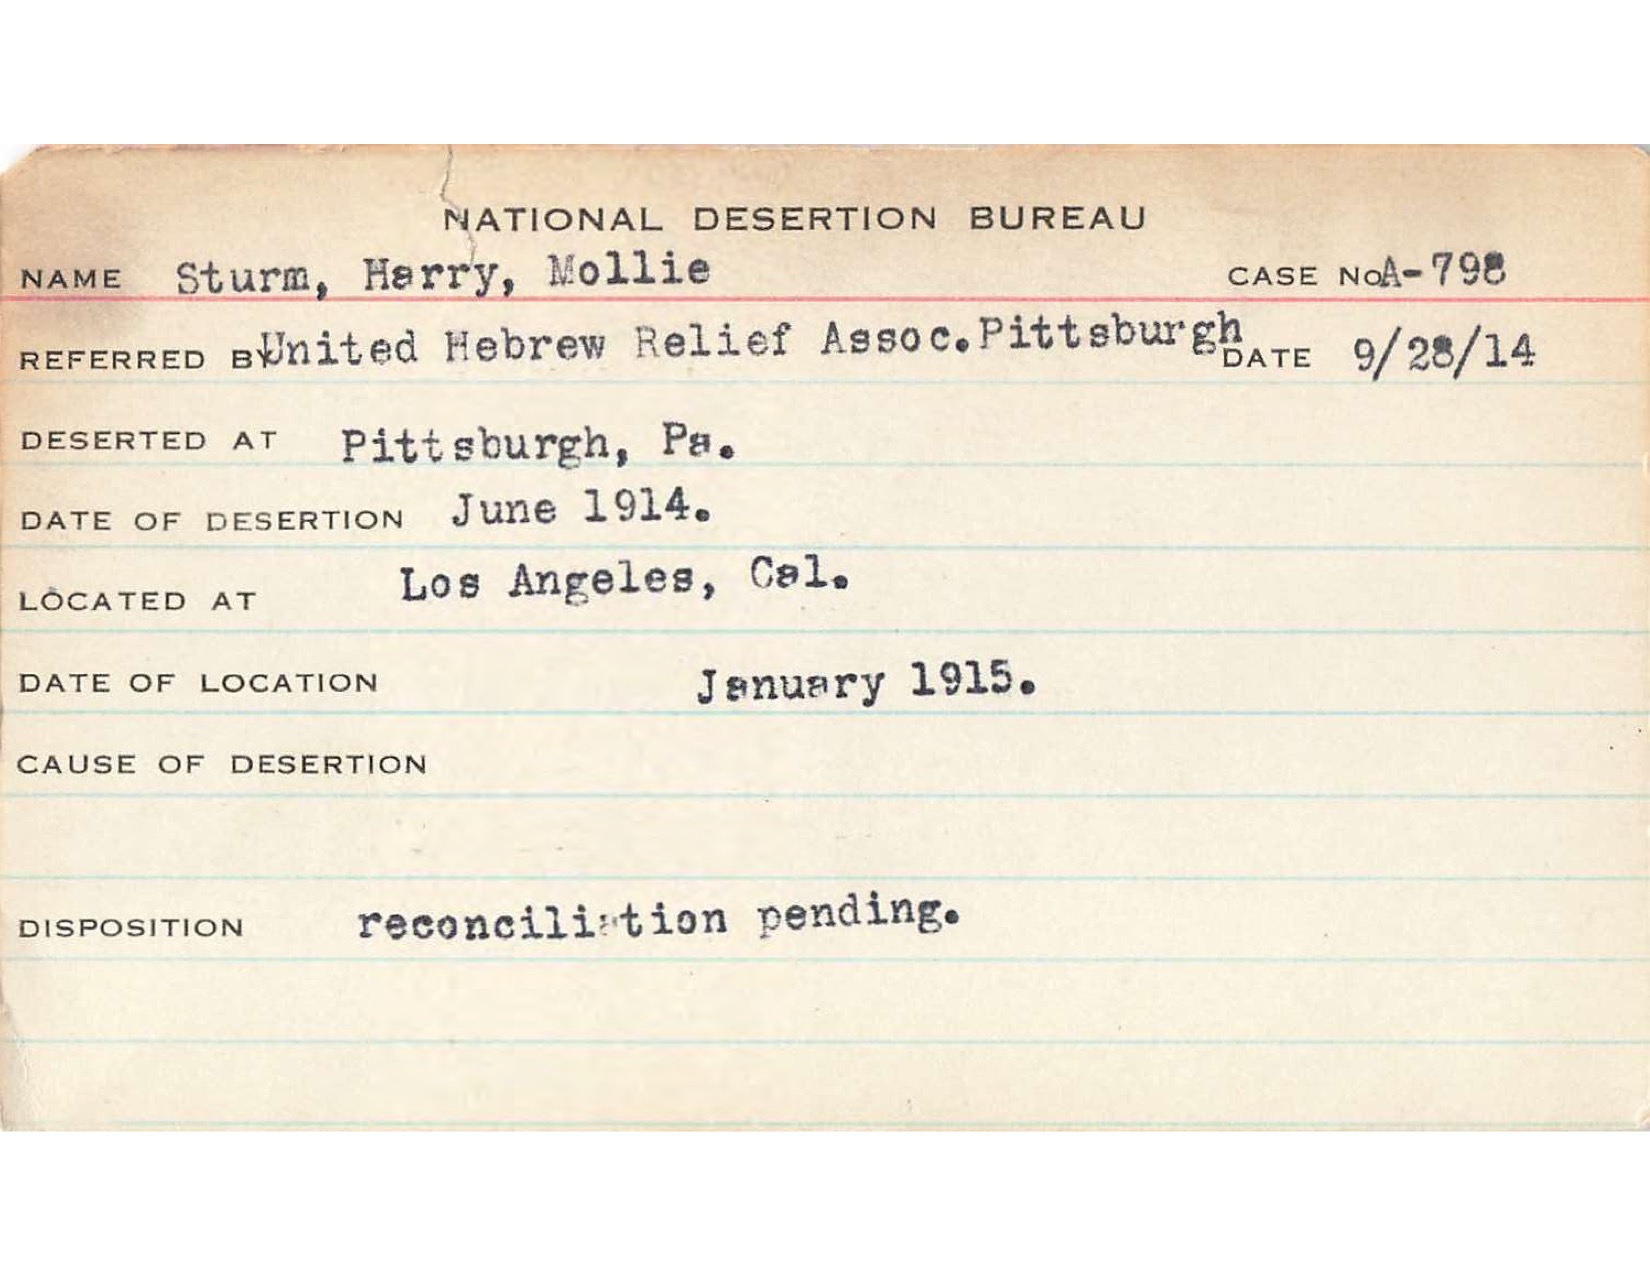 NATIONAL DESERTION BUREAU
NAME Sturm, Harry, Mollie CASE No. A-798
REFERRED BY United Hebrew Relief Assoc. Pittsburgh DATE 9/28/14
DESERTED AT Pittsburgh, Pa.
DATE OF DESERTION June 1914.
LOCATED AT Los Angeles, Cal.
DATE OF LOCATION January 1915.
CAUSE OF DESERTION
DISPOSITION reconciliation pending.